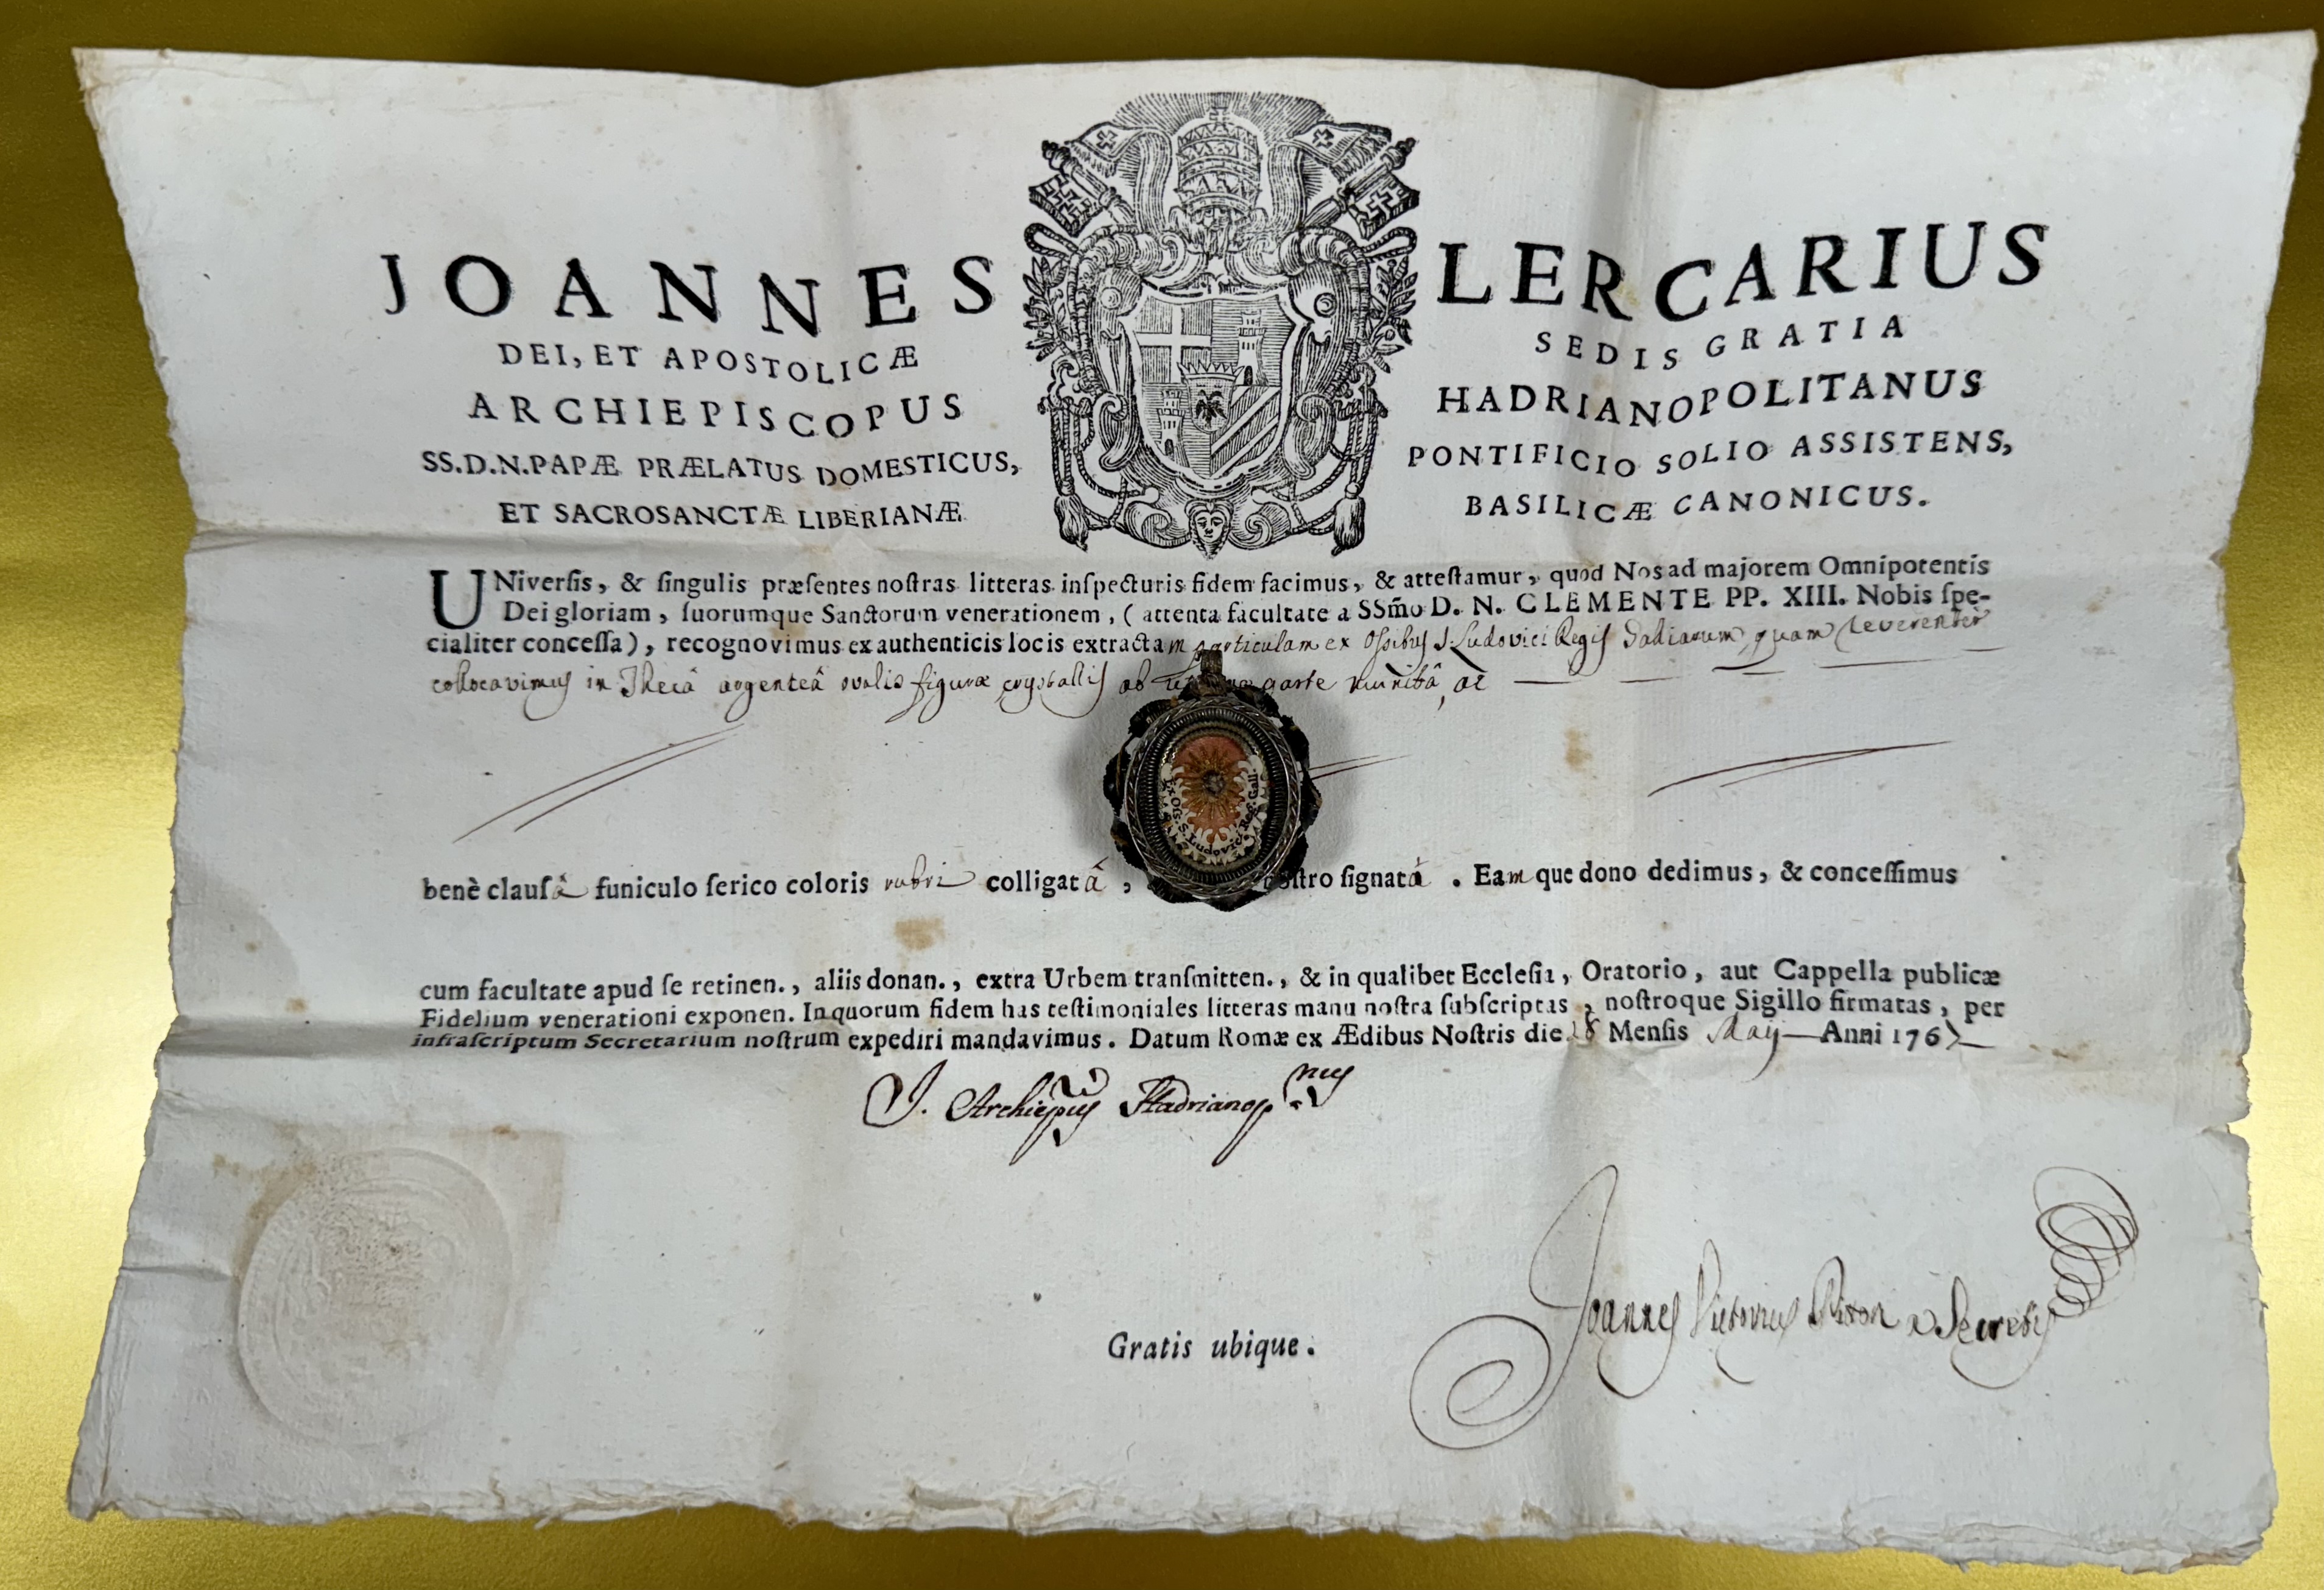 JOANNES LERCARIUS
DEI, ET APOSTOLICÆ SEDIS GRATIA
ARCHIEPISCOPUS HADRIANOPOLITANUS
SS.D.N.PAPÆ PRÆLATUS DOMESTICUS, PONTIFICIO SOLIO ASSISTENS,
ET SACROSANCTÆ LIBERIANÆ BASILICÆ CANONICUS.
UNiverſis, & ſingulis præſentes noſtras litteras inſpecturis fidem facimus, & atteſtamur, quod Nos ad majorem Omnipotentis
Dei gloriam, ſuorumque Sanctorum venerationem, (attenta facultate a SSm̃o D. N. CLEMENTE PP. XIII. Nobis ſpe-
cialiter conceſſa), recognovimus ex authenticis locis extractam particulam ex Ossibus S. Ludovici Regis Galliarum, quam reverenter
collocavimus in Thecâ argenteâ ovalis figuræ crystallis ab parte munitâ, ac
Ex Oss. S. Ludovici Reg. Gall.
benè clauſâ funiculo ſerico coloris rubri colligatâ, noſtro ſignatâ. Eamque dono dedimus, & conceſſimus
cum facultate apud ſe retinen., aliis donan., extra Urbem tranſmitten., & in qualibet Eccleſia, Oratorio, aut Cappella publicæ
Fidelium venerationi exponen. In quorum fidem has teſtimoniales litteras manu noſtra ſubſcriptas, noſtroque Sigillo firmatas, per
infraſcriptum Secretarium noſtrum expediri mandavimus. Datum Romæ ex Ædibus Noſtris die Menſis Maij Anni 176
J. Archiepũs Hadrianop.nus
Gratis ubique.
Joannes a Secretis